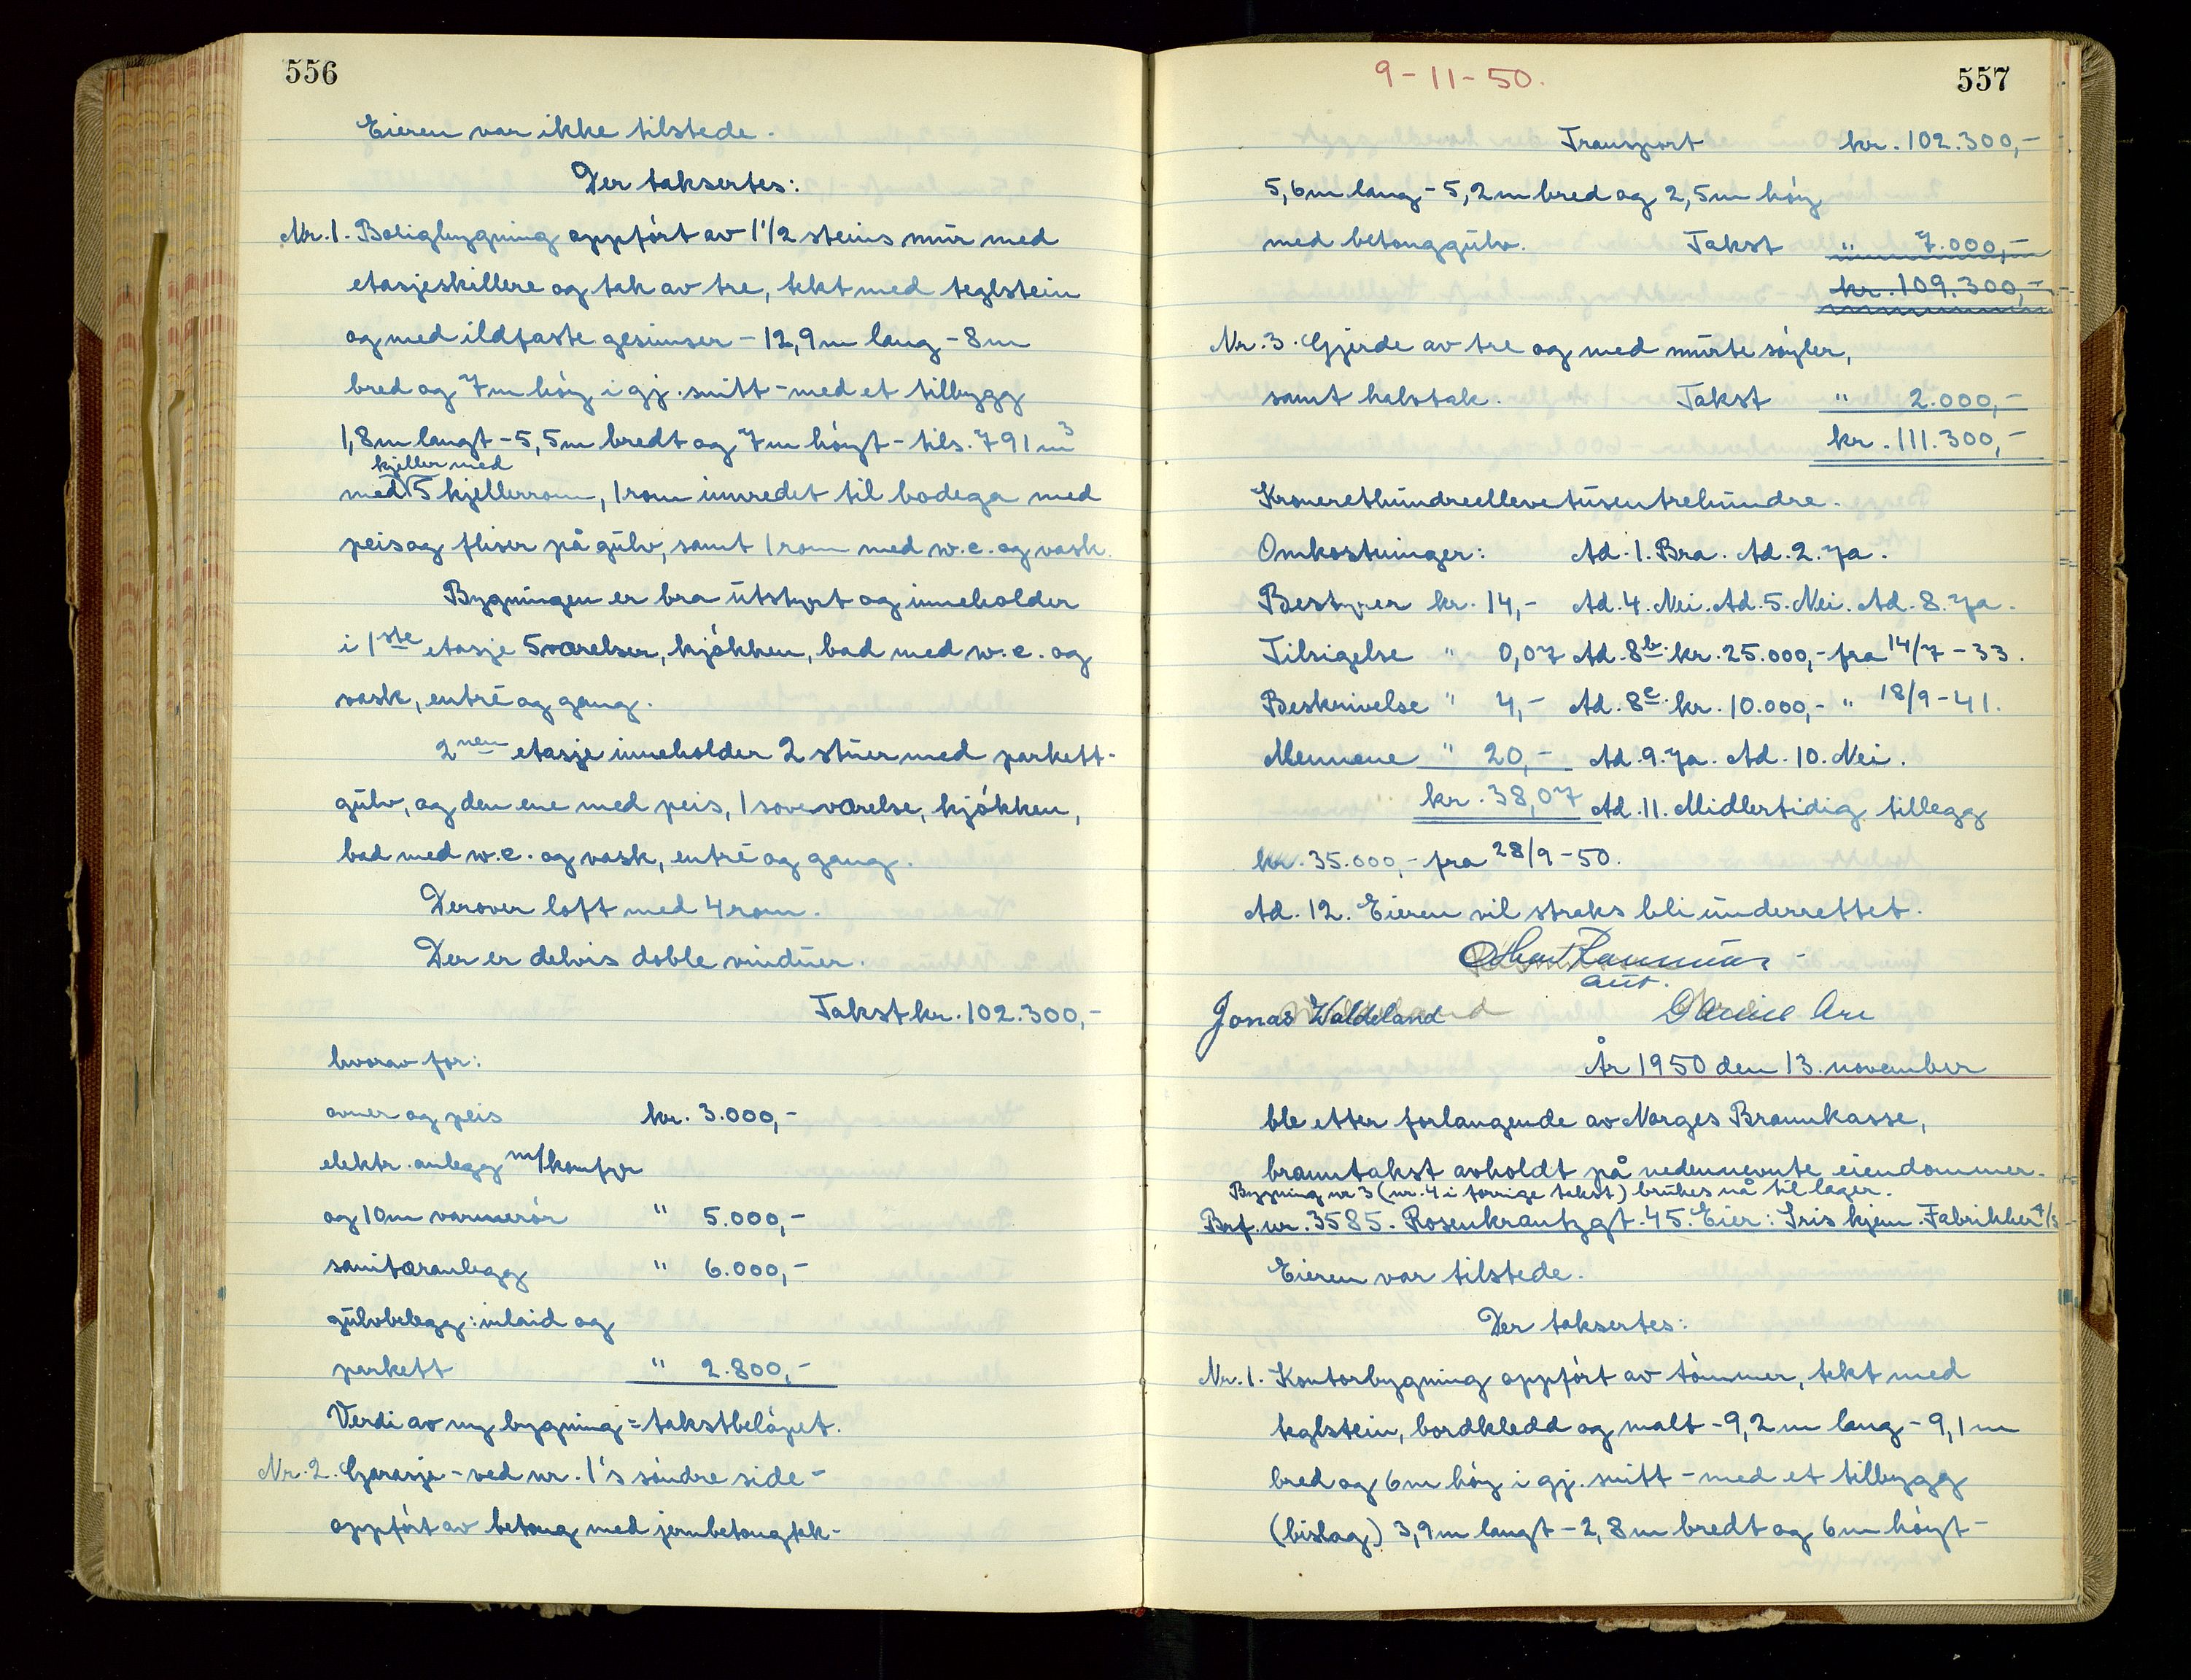 556
Eieren var ikke tilstede.
Der taksertes:
Nr. 1. Boligbygning oppført av 1 1/2 steins mur med
etasjeskillere og tak av tre, tekt med teglstein
og med ildfaste gesimser - 12,9m lang - 8m
bred og 7m høy i gj. snitt - med et tilbygg
1,8m langt - 5,5m bredt og 7m høyt - tils. 791 m³
kjeller med
med 5 kjellerrom, 1 rom innredet til bodega med
peis og fliser på gulv, samt 1 rom med w.c. og vask.
Bygningen er bra utstyrt og inneholder
i 1ste etasje 5 værelser, kjøkken, bad med w.c. og
vask, entré og gang.
2nen etasje inneholder 2 stuer med parkett-
gulv, og den ene med peis, 1 soveværelse, kjøkken,
bad med w.c. og vask, entré og gang.
Derover loft med 4 rom.
Der er delvis doble vinduer.
Takst kr. 102.300,-
hvorav for:
ovner og peis kr. 3.000,-
elektr. anlegg m/komfyr
og 10m varmerør " 5.000,-
sanitæranlegg " 6.000,-
gulvbelegg: inlaid og
parkett " 2.800,-
Verdi av ny bygning = takstbeløpet.
Nr. 2. Garasje - ved nr. 1's søndre side -
oppført av betong med jernbetongtak -
9-11-50.
557
Transport kr. 102.300,-
5,6m lang - 5,2m bred og 2,5m høy
med betonggulv. Takst " 7.000,-
kr. 109.300,-
Nr. 3. Gjerde av tre og med murte søyler,
samt halvtak. Takst " 2.000,-
kr. 111.300,-
Kroneretthundreellevetusentrehundre.
Omkostninger: Ad. 1. Bra. Ad. 2. Ja.
Bestyrer kr. 14,- Ad. 4. Nei. Ad. 5. Nei. Ad. 8. Ja.
Tilsigelse " 0,07 Ad. 8b. kr. 25.000,- fra 14/7-33.
Beskrivelse " 4,- Ad. 8c. kr. 10.000,- " 18/9-41.
Mennene " 20,- Ad. 9. Ja. Ad. 10. Nei.
kr. 38,07 Ad. 11. Midlertidig tillegg
kr. 35.000,- fra 28/9-50.
Ad. 12. Eieren vil straks bli underrettet.
aut.
Jonas Waldeland
År 1950 den 13. november
ble etter forlangende av Norges Brannkasse,
branntakst avholdt på nedennevnte eiendommer.
Bygning nr 3 (nr. 4 i forrige takst) brukes nå til lager.
Brf. nr. 3585. Rosenkrantzgt. 45. Eier: Iris kjem. Fabrikker A/S
Eieren var tilstede.
Der taksertes:
Nr. 1. Kontorbygning oppført av tømmer, tekt med
teglstein, bordkledd og malt - 9,2m lang - 9,1m
bred og 6m høy i gj. snitt - med et tilbygg
(bislag) 3,9m langt - 2,8m bredt og 6m høyt -